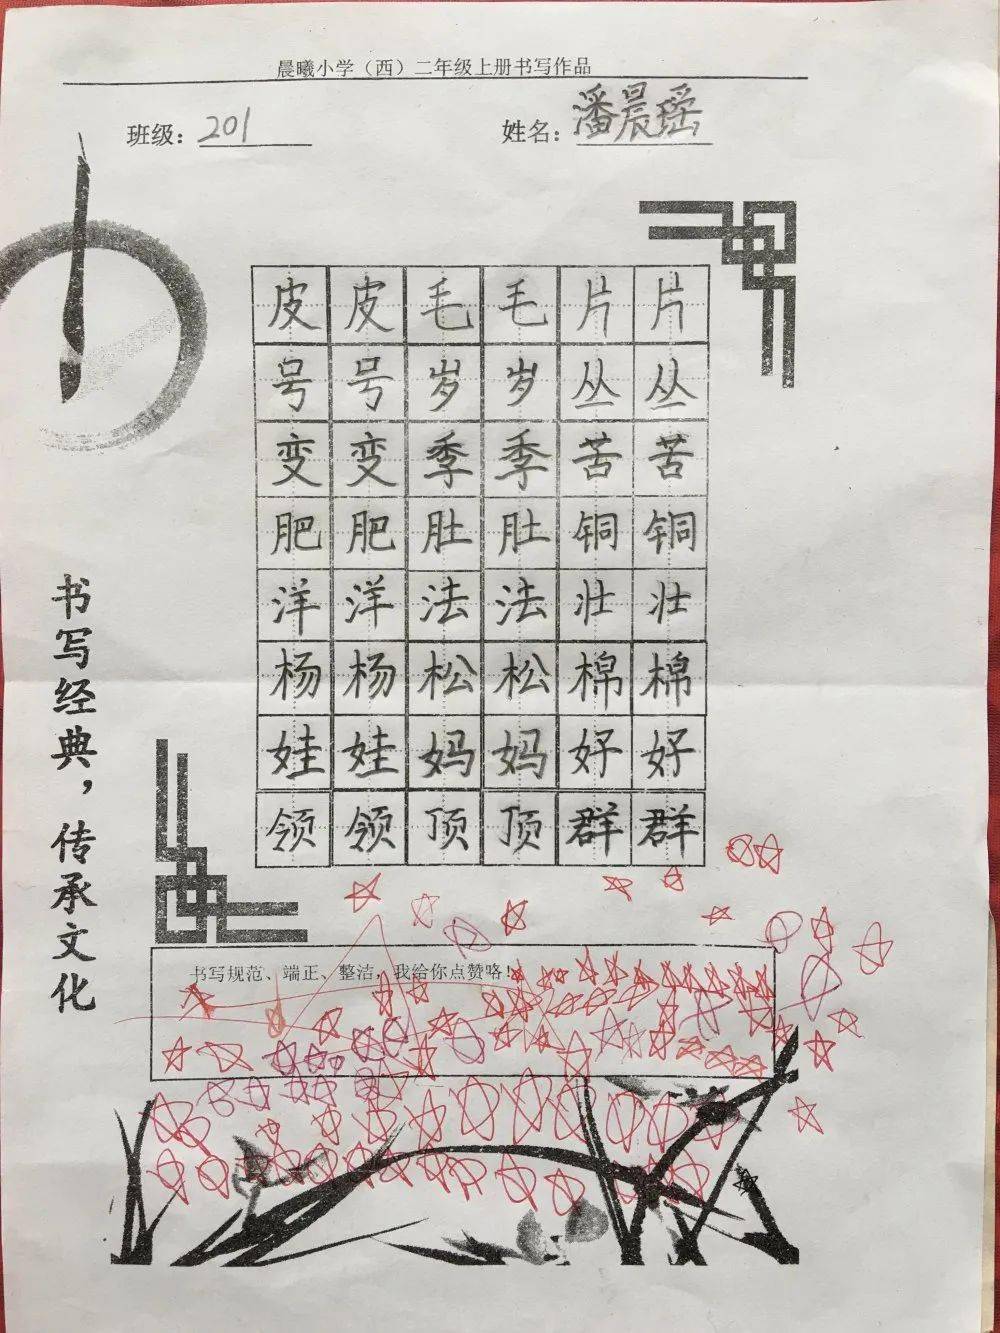 晨曦小学（西）二年级上册书写作品
班级：201 姓名：潘晨瑶
皮皮毛毛片片
号号岁岁丛丛
变变季季苦苦
肥肥肚肚铜铜
洋洋法法壮壮
杨杨松松棉棉
娃娃妈妈好好
领领顶顶群群
书写经典，传承文化
书写规范、端正、整洁，我给你点赞咯！